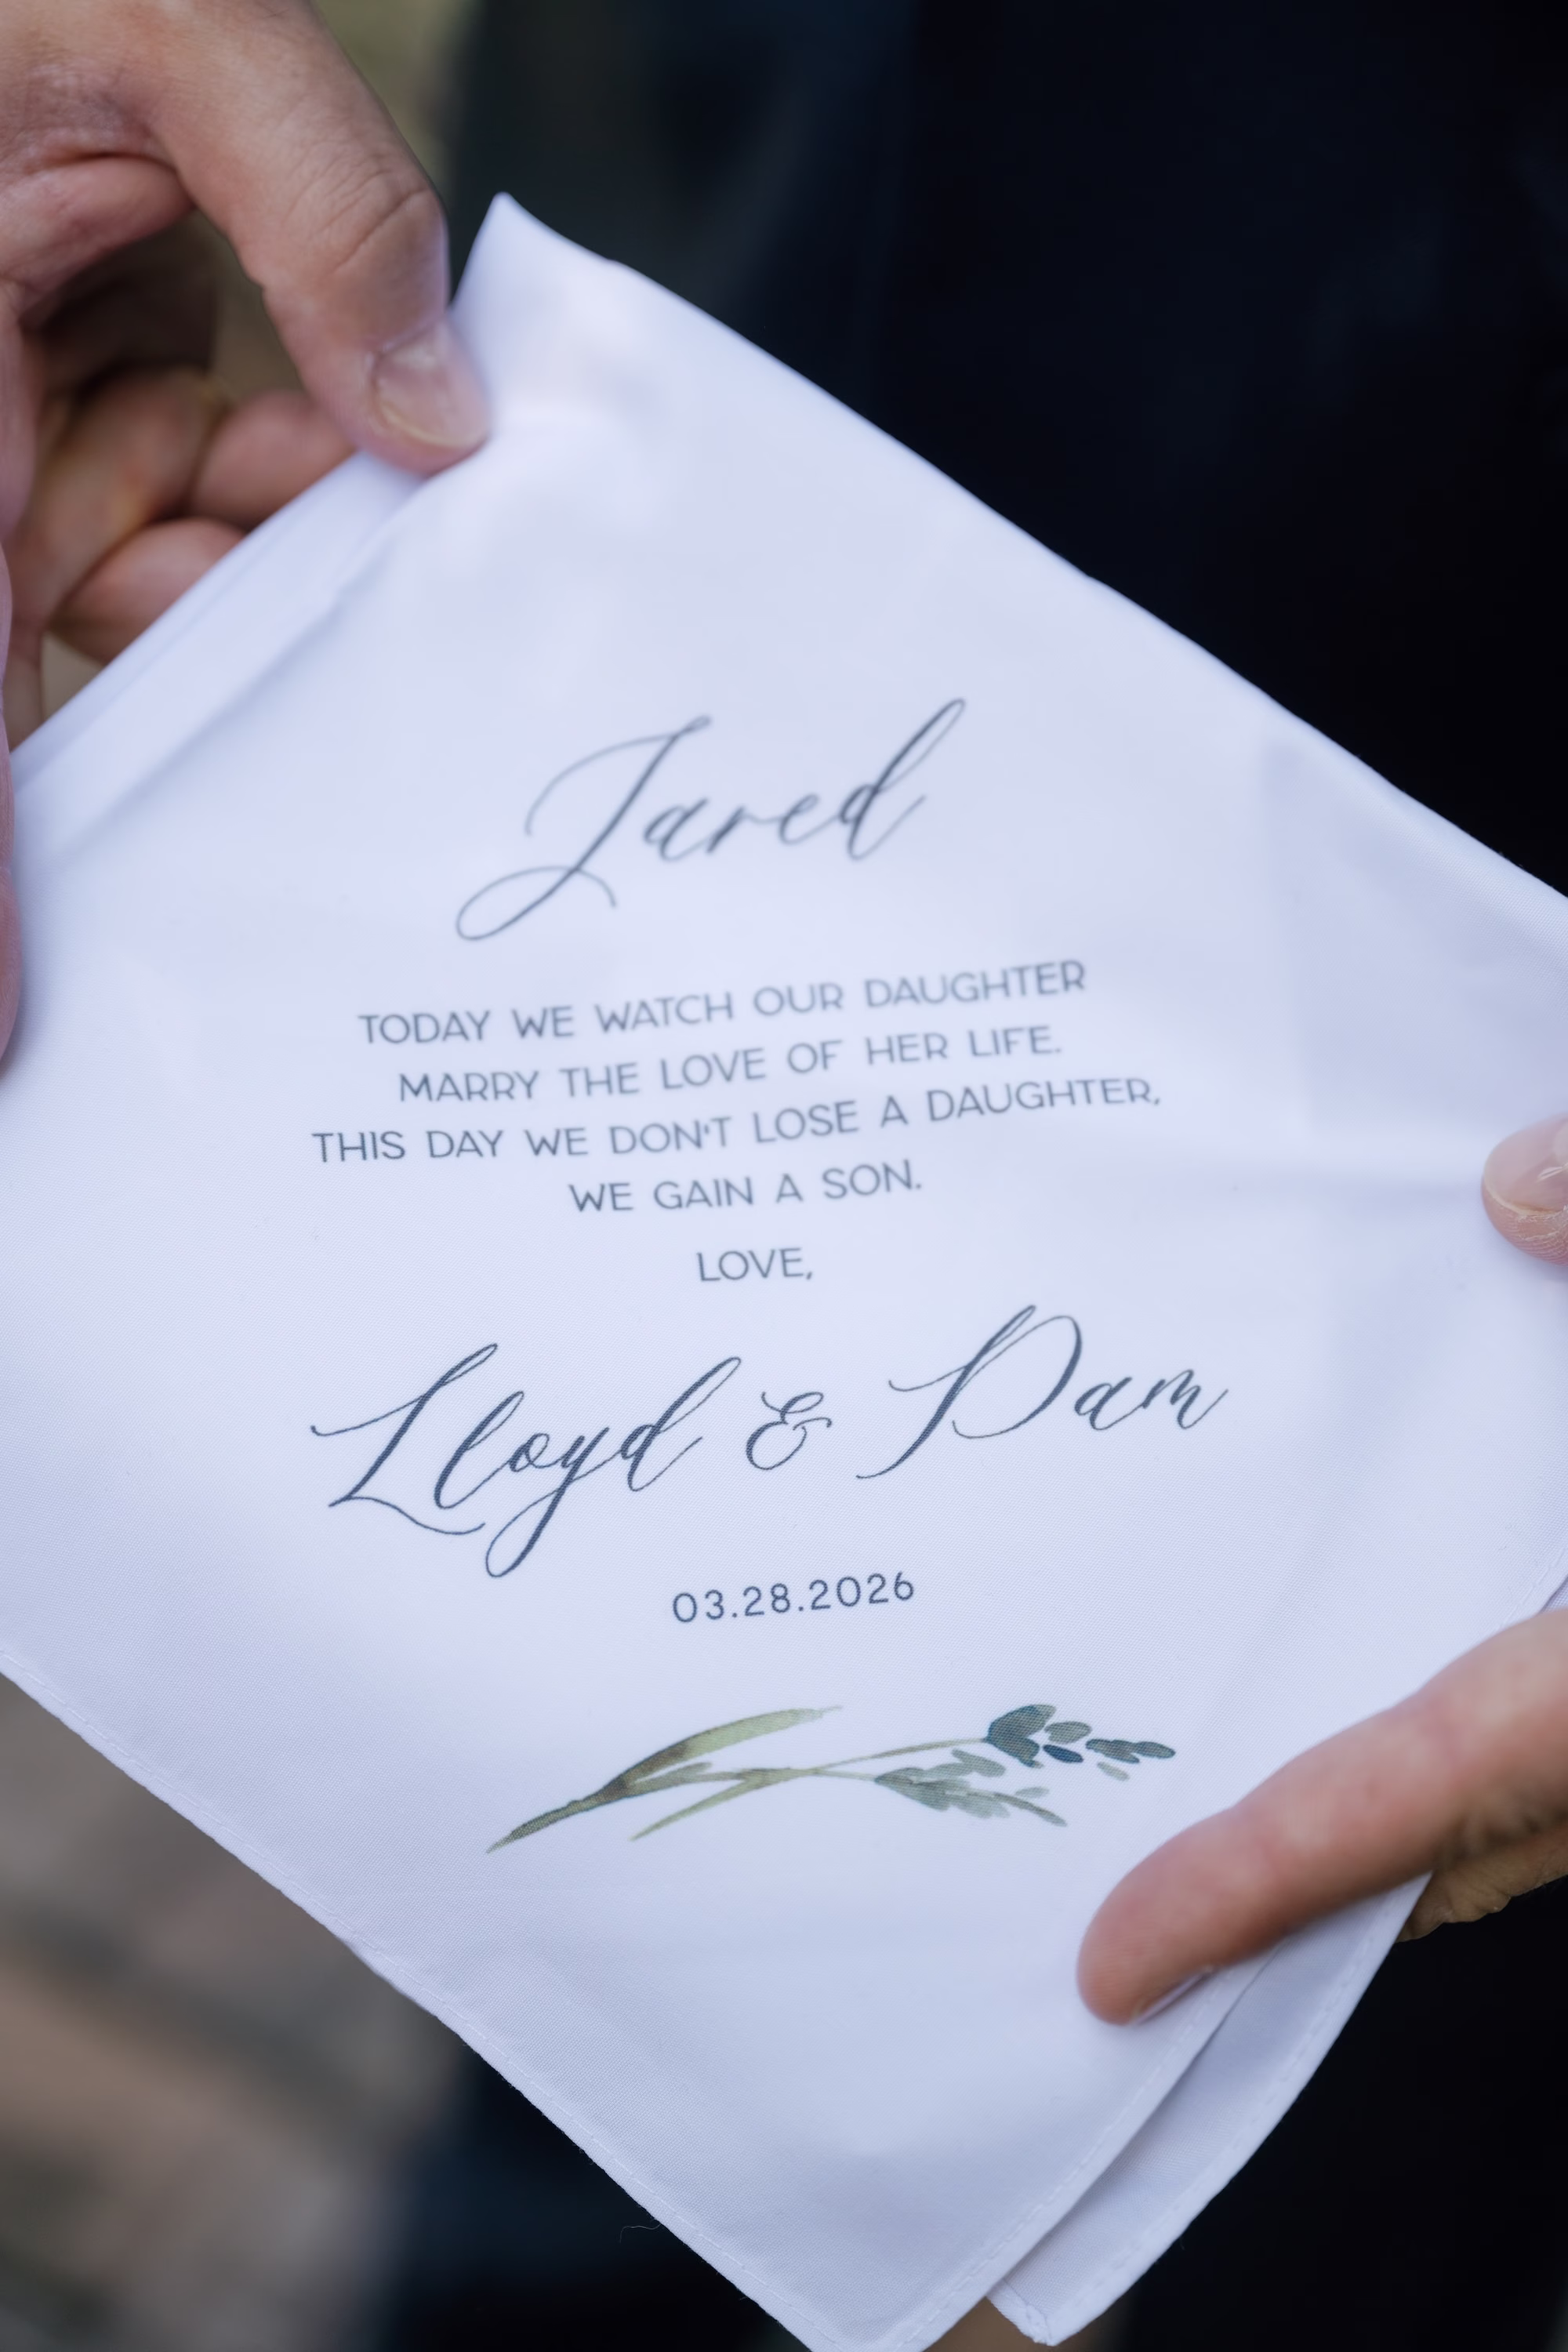 Jared
TODAY WE WATCH OUR DAUGHTER
MARRY THE LOVE OF HER LIFE.
THIS DAY WE DON'T LOSE A DAUGHTER,
WE GAIN A SON.
LOVE,
Lloyd & Pam
03.28.2026